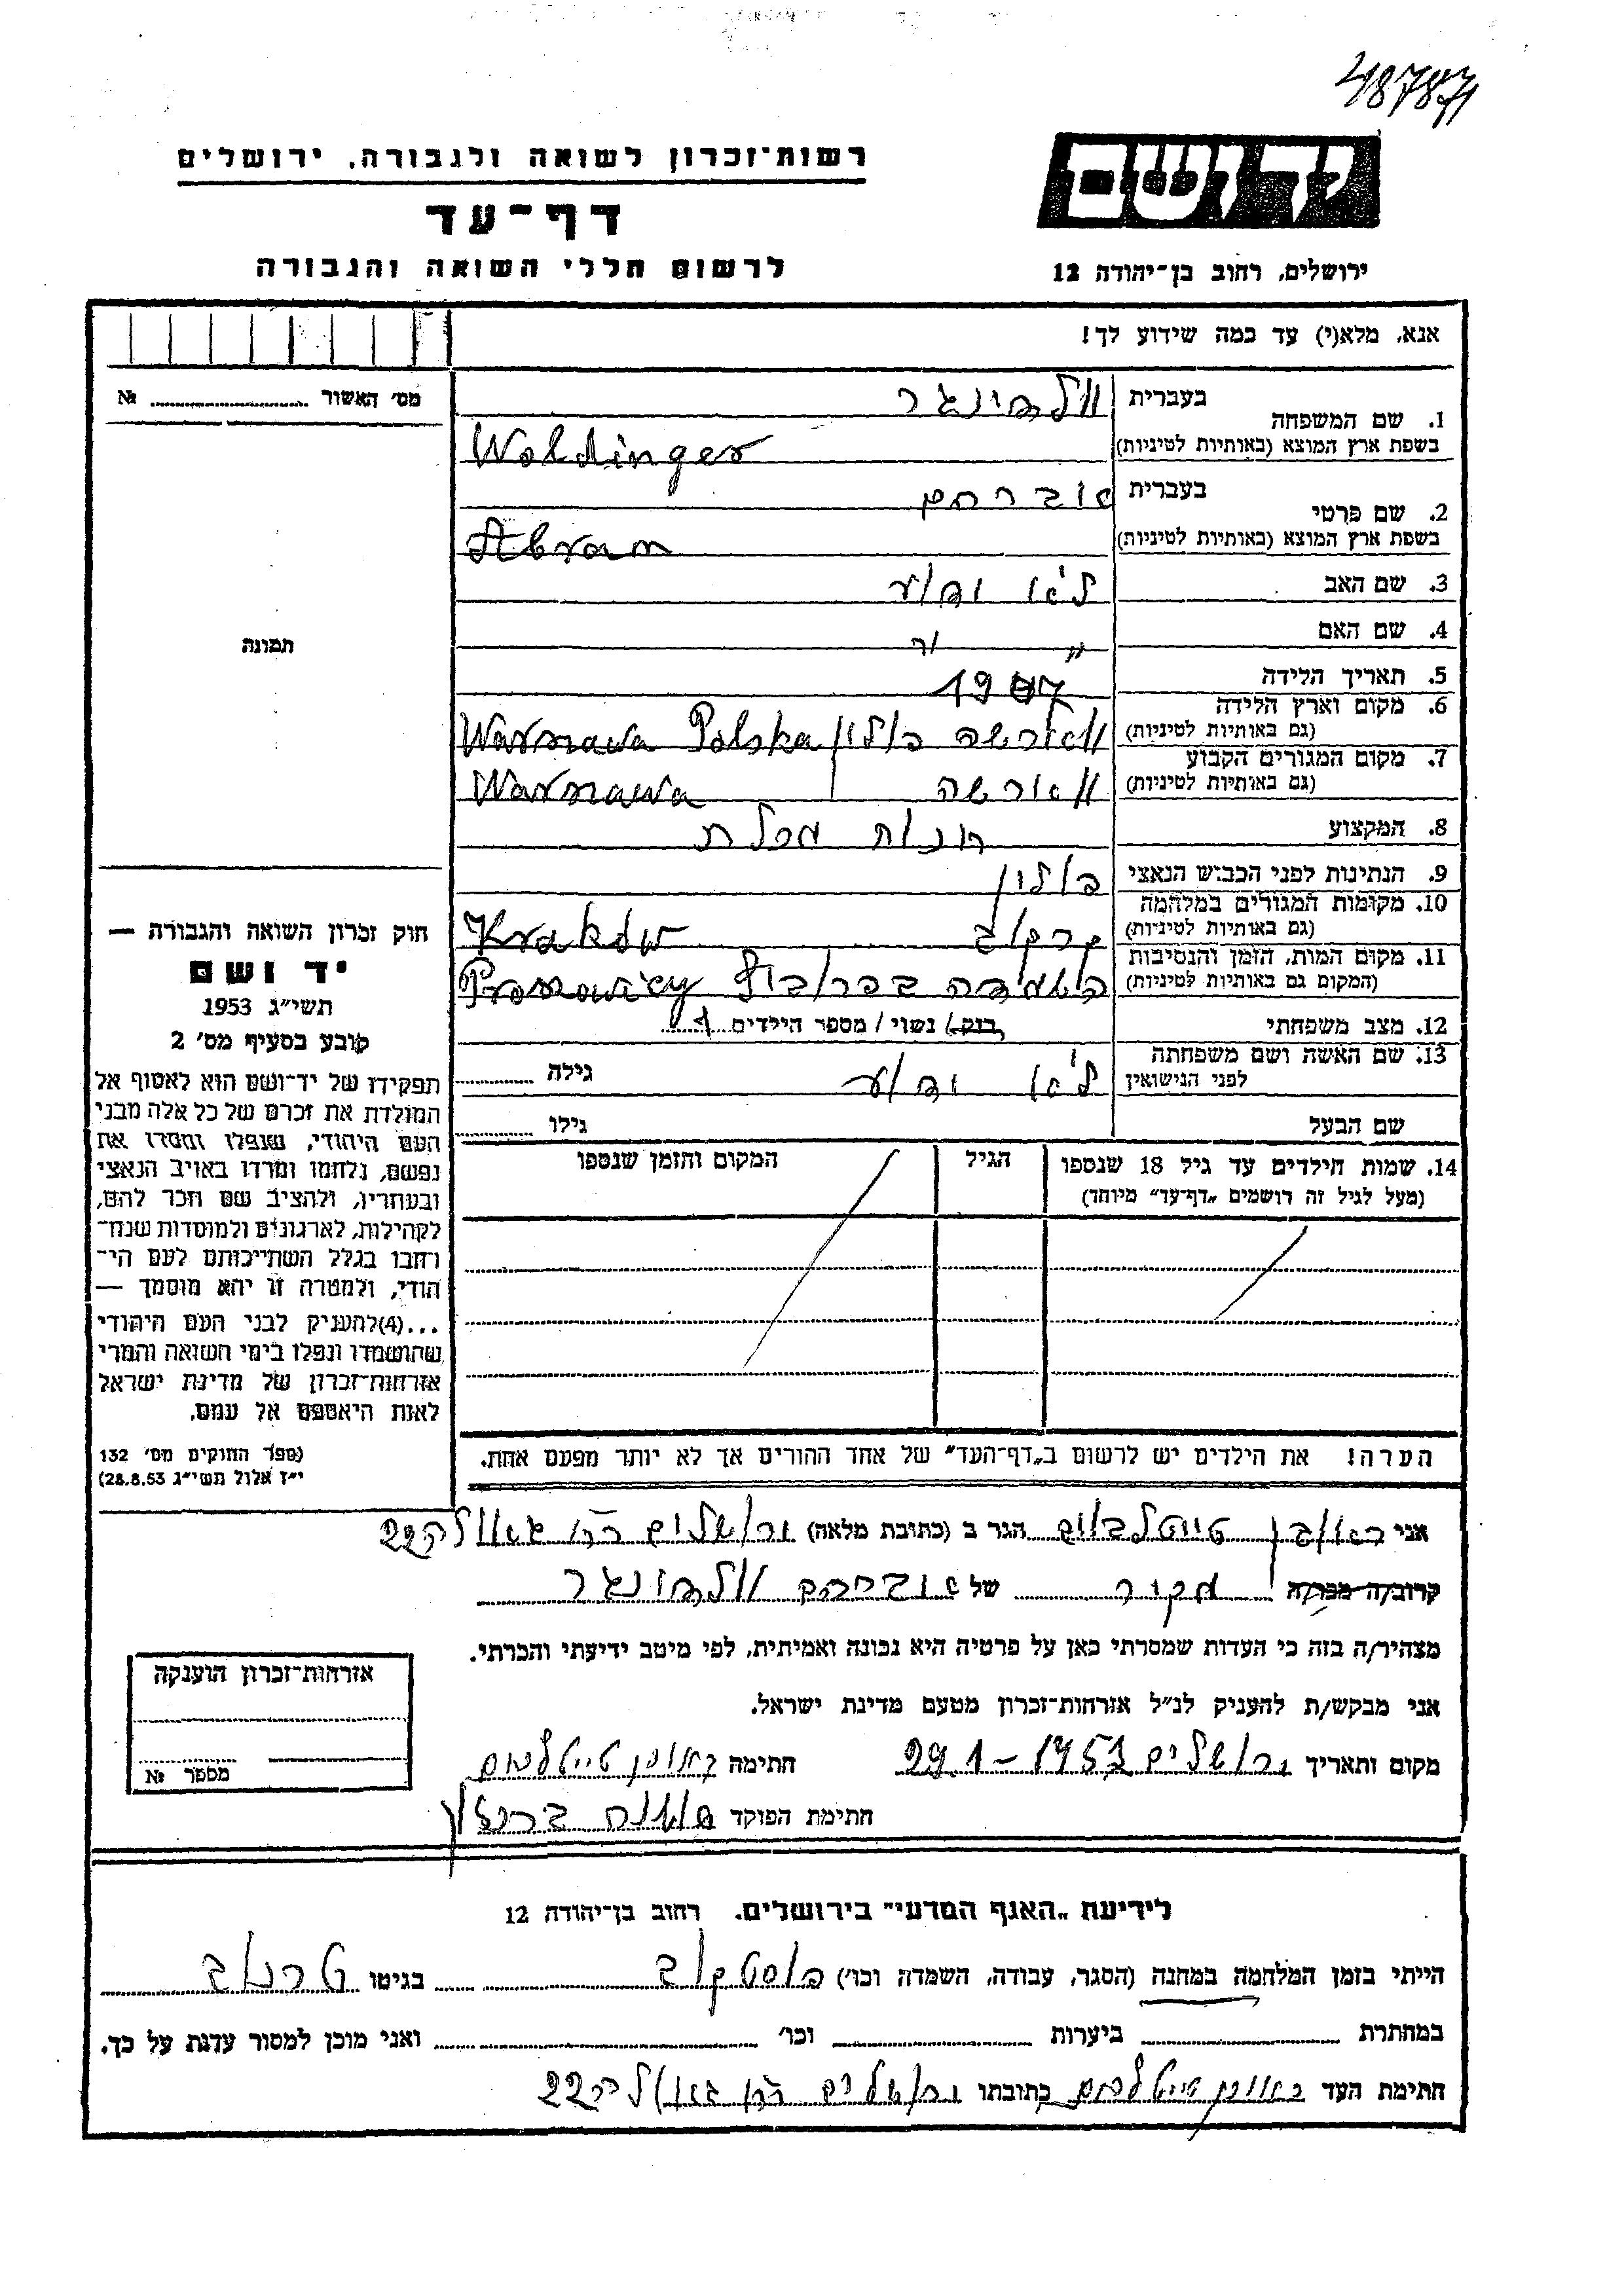 48787
יד ושם
רשות-זכרון לשואה ולגבורה, ירושלים
דף-עד
לרשום חללי השואה והגבורה
ירושלים, רחוב בן-יהודה 12
אנא, מלא(י) עד כמה שידוע לך!
מס' האשור № 
תמונה
1. שם המשפחה בעברית וולדינגר
בשפת ארץ המוצא (באותיות לטיניות) Woldinger
2. שם פרטי בעברית אברהם
בשפת ארץ המוצא (באותיות לטיניות) Abram
3. שם האב לא ידוע
4. שם האם " "
5. תאריך הלידה
6. מקום וארץ הלידה (גם באותיות לטיניות) ווארשה פולין Warszawa Polska
7. מקום המגורים הקבוע (גם באותיות לטיניות) ווארשה Warszawa
8. המקצוע חנות מכלת
9. הנתינות לפני הכבוש הנאצי פולין
10. מקומות המגורים במלחמה (גם באותיות לטיניות) קרקוב Kraków
11. מקום המות, הזמן והנסיבות (המקום גם באותיות לטיניות)
12. מצב משפחתי רווק / נשוי / מספר הילדים
13. שם האשה ושם משפחתה לפני הנישואין לא ידוע גילה
שם הבעל גילו
14. שמות הילדים עד גיל 18 שנספו (מעל לגיל זה רושמים „דף-עד" מיוחד) הגיל המקום והזמן שנספו
הערה! את הילדים יש לרשום ב„דף-העד" של אחד ההורים אך לא יותר מפעם אחת.
חוק זכרון השואה והגבורה —
יד ושם
תשי"ג 1953
קובע בסעיף מס' 2
תפקידו של יד-ושם הוא לאסוף אל
המולדת את זכרם של כל אלה מבני
העם היהודי, שנפלו ומסרו את
נפשם, נלחמו ומרדו באויב הנאצי
ובעוזריו, ולהציב שם וזכר להם,
לקהילות, לארגונים ולמוסדות שנח-
רבו בגלל השתייכותם לעם הי-
הודי, ולמטרה זו יהא מוסמך —
...(4) להעניק לבני העם היהודי
שהושמדו ונפלו בימי השואה והמרי
אזרחות-זכרון של מדינת ישראל
לאות היאספם אל עמם.
(ספר החוקים מס' 132
י"ז אלול תשי"ג 28.8.53)
אני ראובן טייטלבוים הגר ב (כתובת מלאה) ירושלים 22
קרוב/ה מכר/ה מכיר של אברהם וולדינגר
מצהיר/ה בזה כי העדות שמסרתי כאן על פרטיה היא נכונה ואמיתית, לפי מיטב ידיעתי והכרתי.
אני מבקש/ת להעניק לנ"ל אזרחות-זכרון מטעם מדינת ישראל.
מקום ותאריך ירושלים חתימה ראובן טייטלבוים
חתימת הפוקד
אזרחות-זכרון הוענקה
מספר №
לידיעת „האגף המדעי" בירושלים. רחוב בן-יהודה 12
הייתי בזמן המלחמה במחנה (הסגר, עבודה, השמדה וכו') פוסטקוב בגיטו טרנוב
במחתרת ביערות וכו' ואני מוכן למסור עדות על כך.
חתימת העד ראובן טייטלבוים כתובתו ירושלים 22